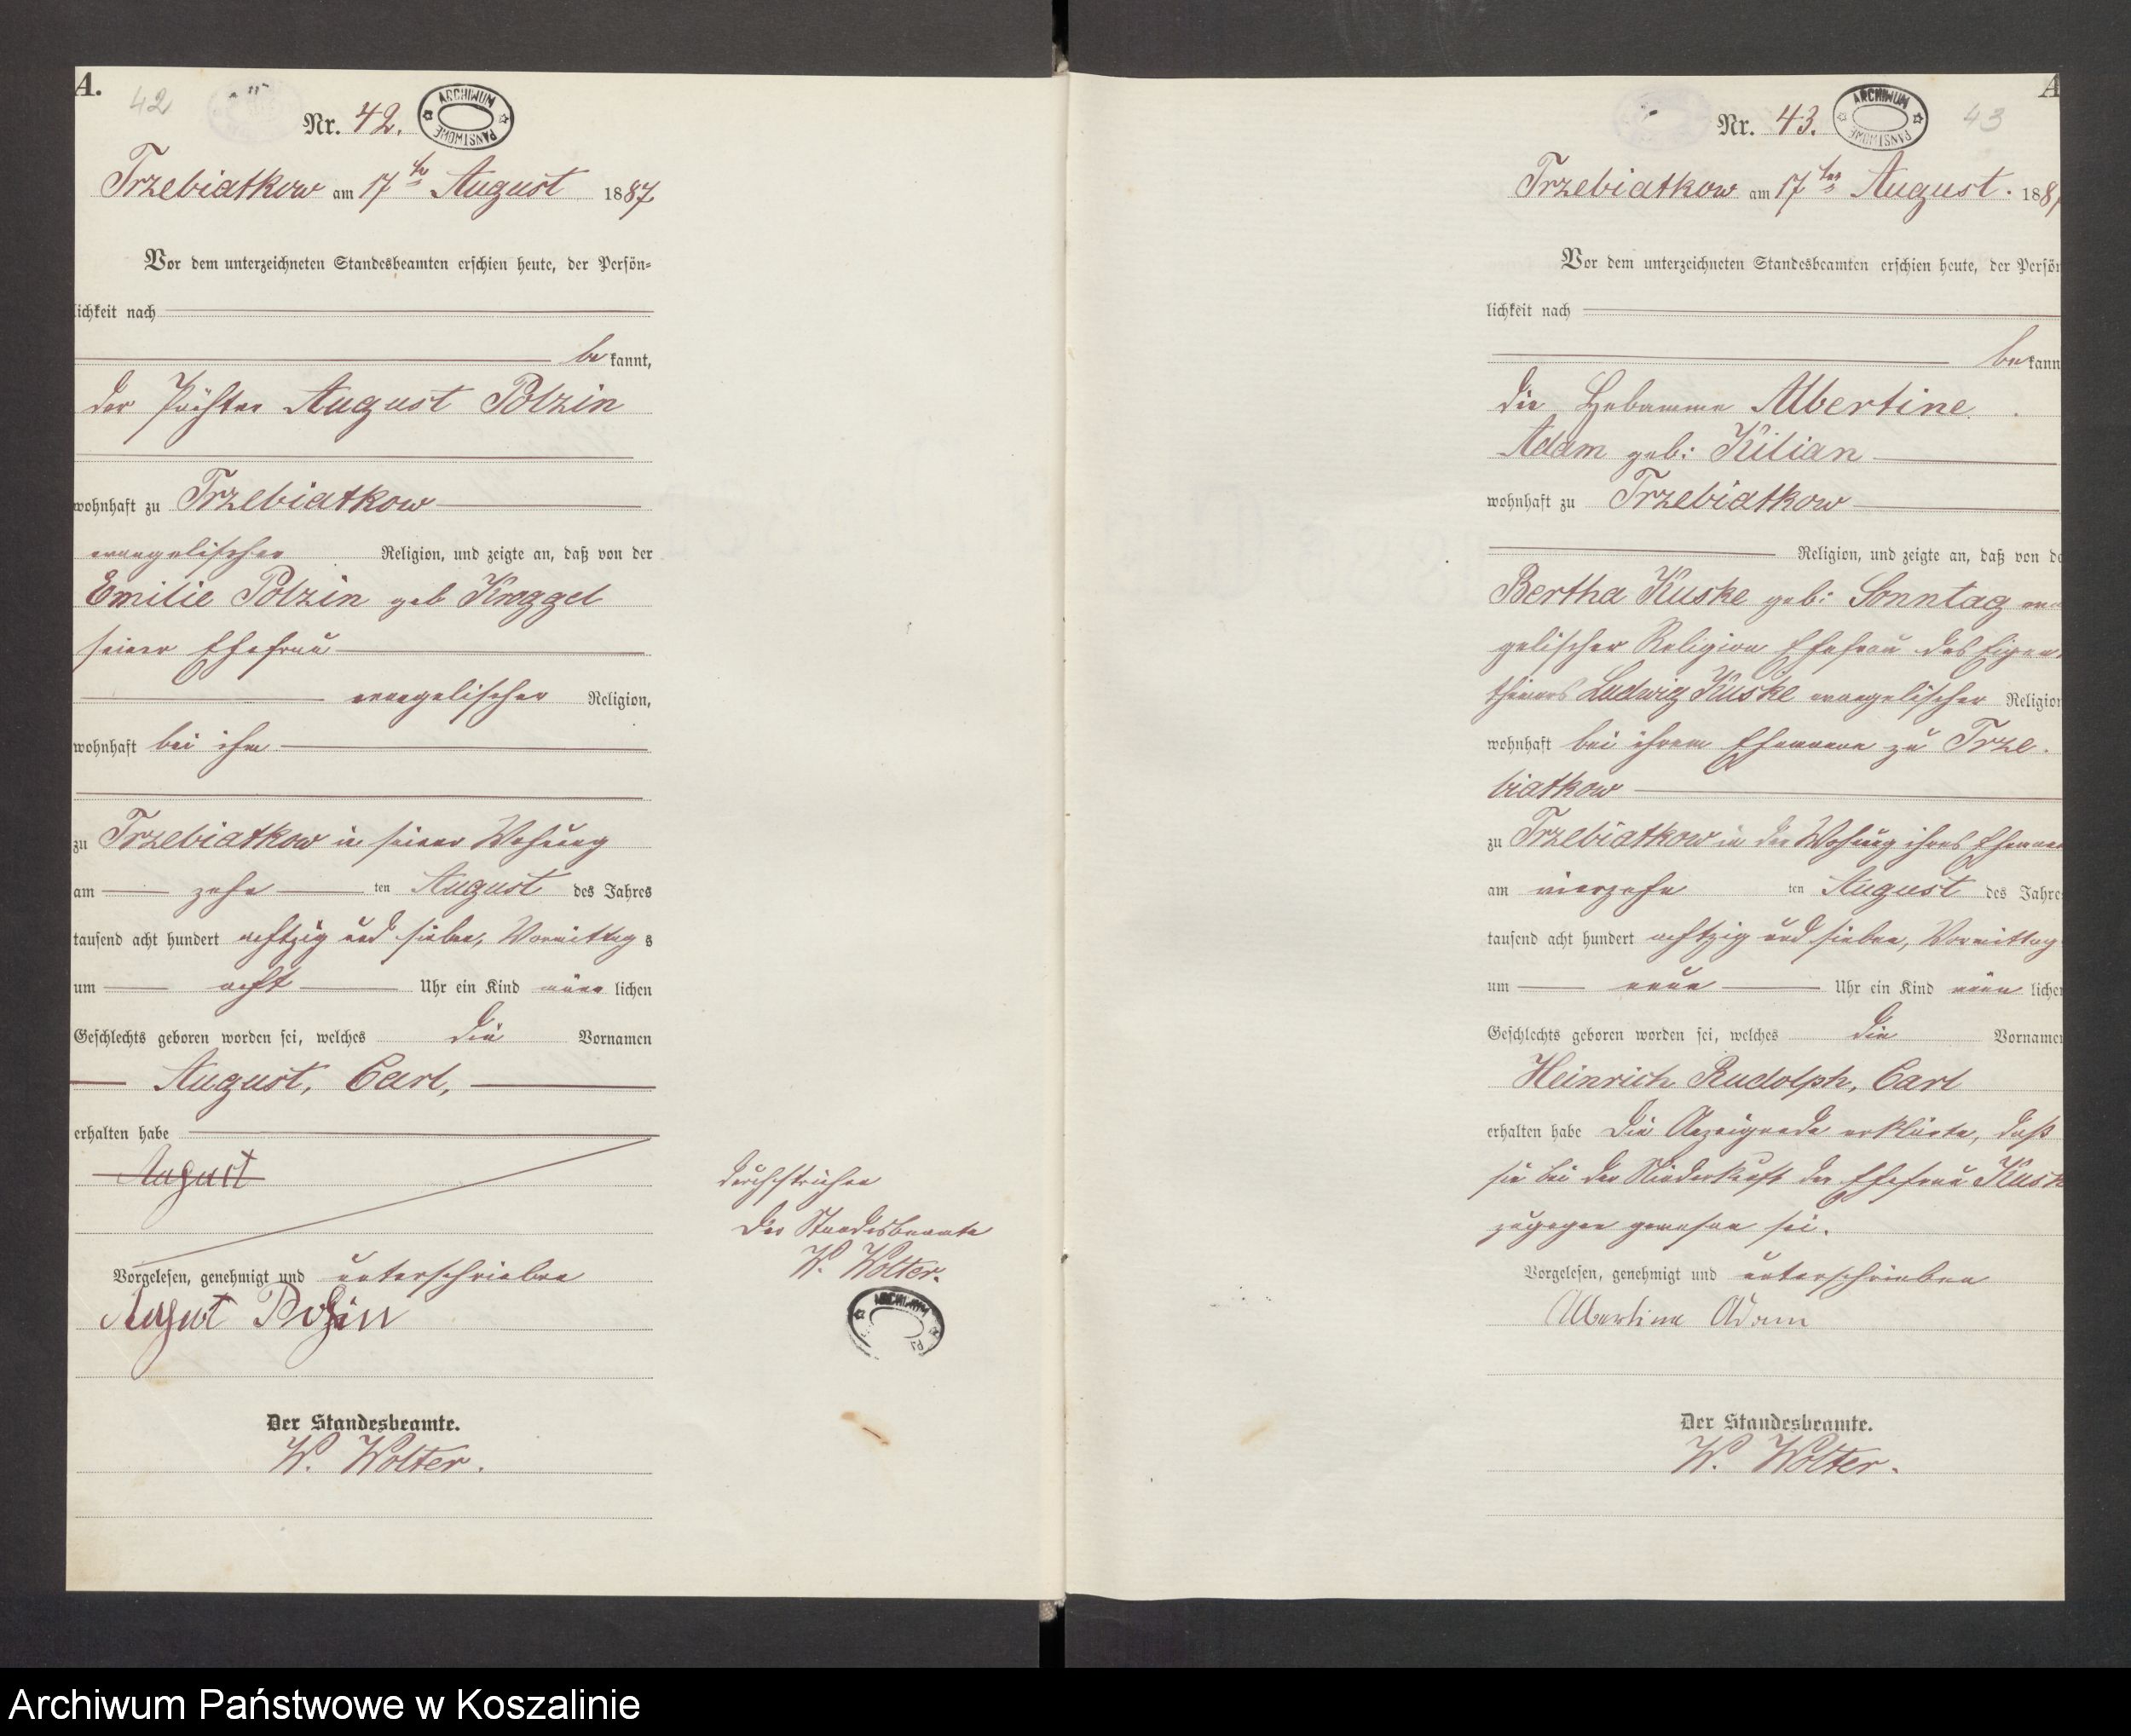 A.
42
Nr. 42.
ARCHIWUM PAŃSTWOWE
Trzebiatkow am 17ten August 1887
Vor dem unterzeichneten Standesbeamten erschien heute, der Persön=
lichkeit nach
be kannt,
der Pächter August Polzin
wohnhaft zu Trzebiatkow
evangelischer Religion, und zeigte an, daß von der
Emilie Polzin geb Kroggel
seiner Ehefrau
evangelischer Religion,
wohnhaft bei ihm
zu Trzebiatkow in seiner Wohnung
am zehn ten August des Jahres
tausend acht hundert achtzig und sieben, Vormittag s
um acht Uhr ein Kind männ lichen
Geschlechts geboren worden sei, welches die Vornamen
August, Carl,
erhalten habe
August
Vorgelesen, genehmigt und unterschrieben
August Polzin
Der Standesbeamte.
W. Wolter.
durchstrichen
Der Standesbeamte
W. Wolter.
ARCHIWUM
A
43
Nr. 43.
ARCHIWUM PAŃSTWOWE
Trzebiatkow am 17ten August. 188
Vor dem unterzeichneten Standesbeamten erschien heute, der Persön
lichkeit nach
be kann
die Hebamme Albertine
Adam geb: Kilian
wohnhaft zu Trzebiatkow
Religion, und zeigte an, daß von de
Bertha Kuske geb: Sonntag evan
gelischer Religion Ehefrau des Eigen
thümers Ludwig Kuske evangelischer Religion
wohnhaft bei ihrem Ehemann zu Trze.
biatkow
zu Trzebiatkow in der Wohnung ihres Ehemann
am vierzehn ten August des Jahre
tausend acht hundert achtzig und sieben, Vormittag
um neun Uhr ein Kind männ lichen
Geschlechts geboren worden sei, welches die Vornamen
Heinrich Rudolph, Carl
erhalten habe Die Anzeigende erklärte, daß
sie bei der Niederkunft der Ehefrau Kusk
zugegen gewesen sei.
Vorgelesen, genehmigt und unterschrieben
Albertine Adam
Der Standesbeamte.
W. Wolter.
Archiwum Państwowe w Koszalinie